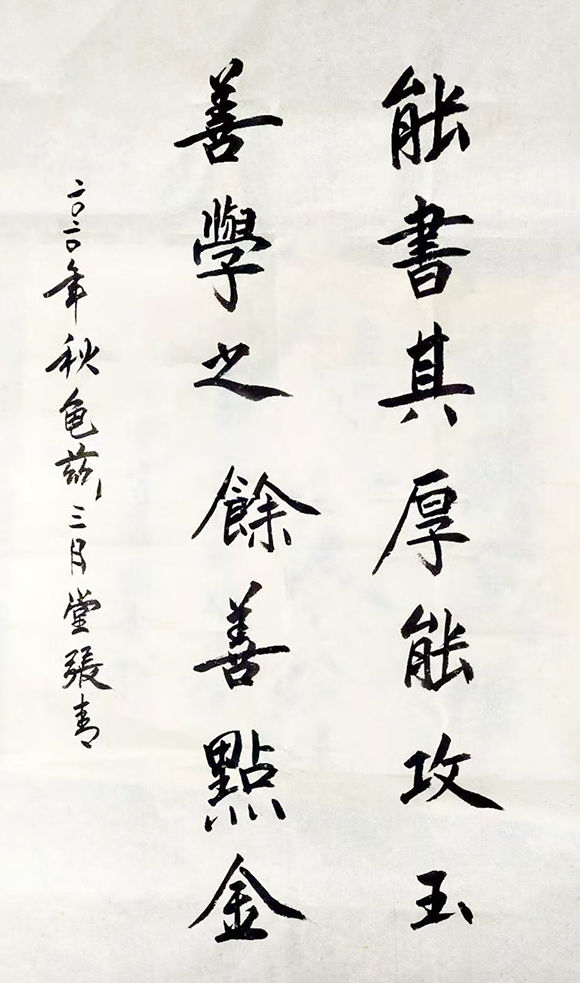 能書其厚能攻玉
善學之餘善點金
二〇二〇年秋龟茲三月堂張青